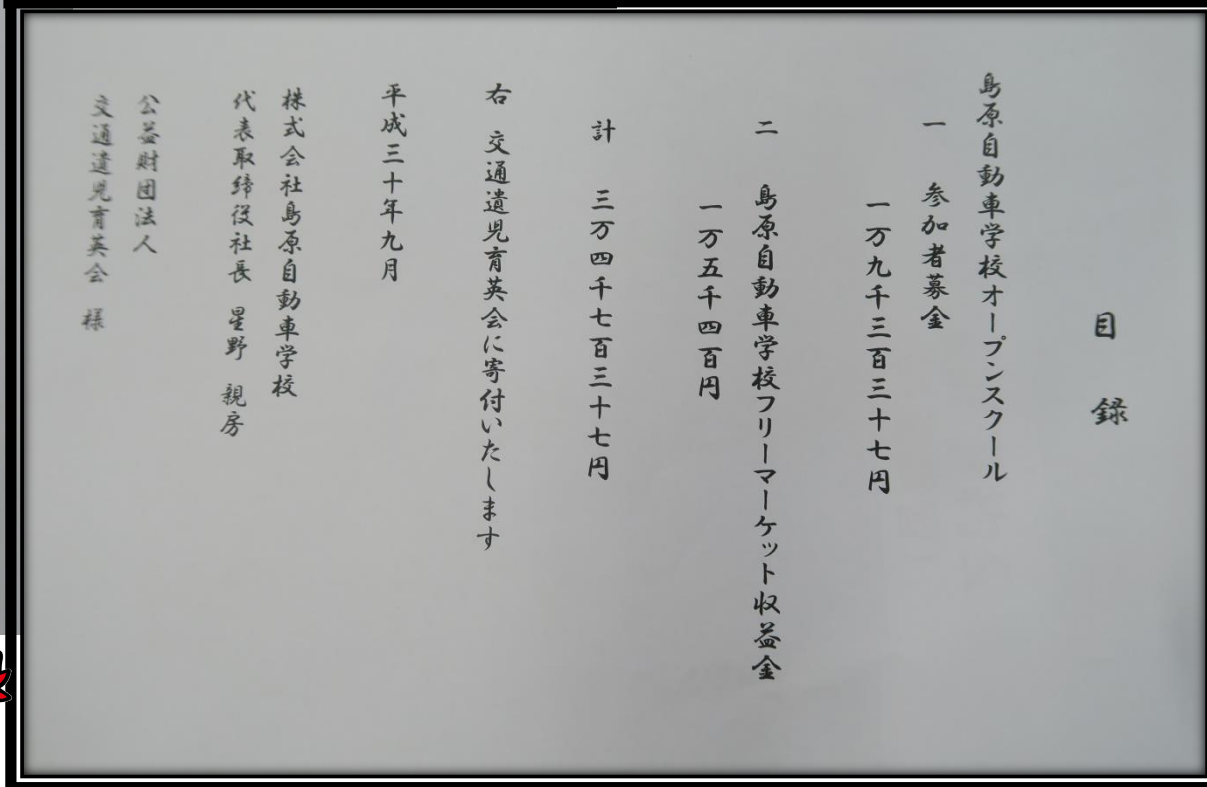 目 録
島原自動車学校オープンスクール
一 参加者募金
一万九千三百三十七円
二 島原自動車学校フリーマーケット収益金
一万五千四百円
計 三万四千七百三十七円
右 交通遺児育英会に寄付いたします
平成三十年九月
株式会社島原自動車学校
代表取締役社長 星野 親房
公益財団法人
交通遺児育英会 様